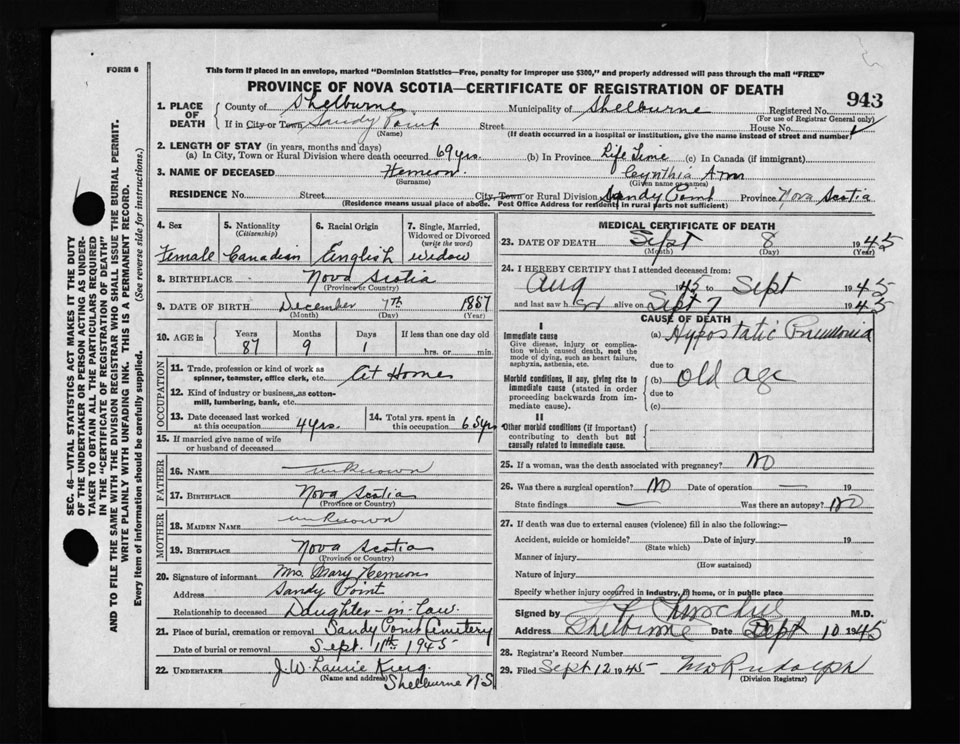 FORM 6
This form if placed in an envelope, marked "Dominion Statistics—Free, penalty for improper use $300," and properly addressed will pass through the mail "FREE"
PROVINCE OF NOVA SCOTIA—CERTIFICATE OF REGISTRATION OF DEATH
943
1. PLACE OF DEATH
County of Shelburne Municipality of Shelburne Registered No.
(For use of Registrar General only)
If in City or Town, Sandy Point Street House No.
(Name) (If death occurred in a hospital or institution, give the name instead of street and number)
2. LENGTH OF STAY (in years, months and days)
(a) In City, Town or Rural Division where death occurred 69 yrs. (b) In Province Life Time (c) In Canada (if immigrant)
3. NAME OF DECEASED Hemeon. Cynthia Ann
(Surname) (Given name or names)
RESIDENCE No. Street City, Town or Rural Division Sandy Point Province Nova Scotia
(Residence means usual place of abode. Post Office Address for residents in rural parts not sufficient)
4. Sex 5. Nationality (Citizenship) 6. Racial Origin 7. Single, Married, Widowed or Divorced (write the word)
Female Canadian English Widow
8. BIRTHPLACE Nova Scotia
(Province or Country)
9. DATE OF BIRTH December 7th 1857
(Month) (Day) (Year)
10. AGE in Years Months Days If less than one day old
87 9 1 hrs. or min.
OCCUPATION
11. Trade, profession or kind of work as spinner, teamster, office clerk, etc. At Home
12. Kind of industry or business, as cotton-mill, lumbering, bank, etc.
13. Date deceased last worked at this occupation 4 yrs. 14. Total yrs. spent in this occupation 65 yrs
15. If married give name of wife or husband of deceased
FATHER
16. NAME unknown
17. BIRTHPLACE Nova Scotia
(Province or Country)
MOTHER
18. MAIDEN NAME unknown
19. BIRTHPLACE Nova Scotia
(Province or Country)
20. Signature of informant Mrs. Mary Hemeon
Address Sandy Point
Relationship to deceased Daughter-in-law.
21. Place of burial, cremation or removal Sandy Point Cemetery
Date of burial or removal Sept. 11th 1945
22. UNDERTAKER J. W. Laurie King.
(Name and address) Shelburne N S
MEDICAL CERTIFICATE OF DEATH
23. DATE OF DEATH Sept 8 1945
(Month) (Day) (Year)
24. I HEREBY CERTIFY that I attended deceased from:
Aug 1945 to Sept 1945
and last saw h alive on Sept 7 1945
CAUSE OF DEATH
I
Immediate cause
Give disease, injury or complication which caused death, not the mode of dying, such as heart failure, asphyxia, asthenia, etc.
(a) Hypostatic Pneumonia
due to
Morbid conditions, if any, giving rise to immediate cause (stated in order proceeding backwards from immediate cause).
(b) old age
due to
(c)
II
Other morbid conditions (if important) contributing to death but not causally related to immediate cause.
25. If a woman, was the death associated with pregnancy? NO
26. Was there a surgical operation? NO Date of operation — 19
State findings — Was there an autopsy? NO
27. If death was due to external causes (violence) fill in also the following:—
Accident, suicide or homicide? Date of injury 19
(State which)
Manner of injury
(How sustained)
Nature of injury
Specify whether injury occurred in industry, in home, or in public place
Signed by M.D.
Address Shelburne Date Sept 10 1945
28. Registrar's Record Number
29. Filed Sept 12 1945 Rudolph
(Division Registrar)
SEC. 46—VITAL STATISTICS ACT MAKES IT THE DUTY
OF THE UNDERTAKER OR PERSON ACTING AS UNDER-
TAKER TO OBTAIN ALL THE PARTICULARS REQUIRED
IN THE "CERTIFICATE OF REGISTRATION OF DEATH"
AND TO FILE THE SAME WITH THE DIVISION REGISTRAR WHO SHALL ISSUE THE BURIAL PERMIT.
WRITE PLAINLY WITH UNFADING INK. THIS IS A PERMANENT RECORD.
Every item of information should be carefully supplied. (See reverse side for instructions.)